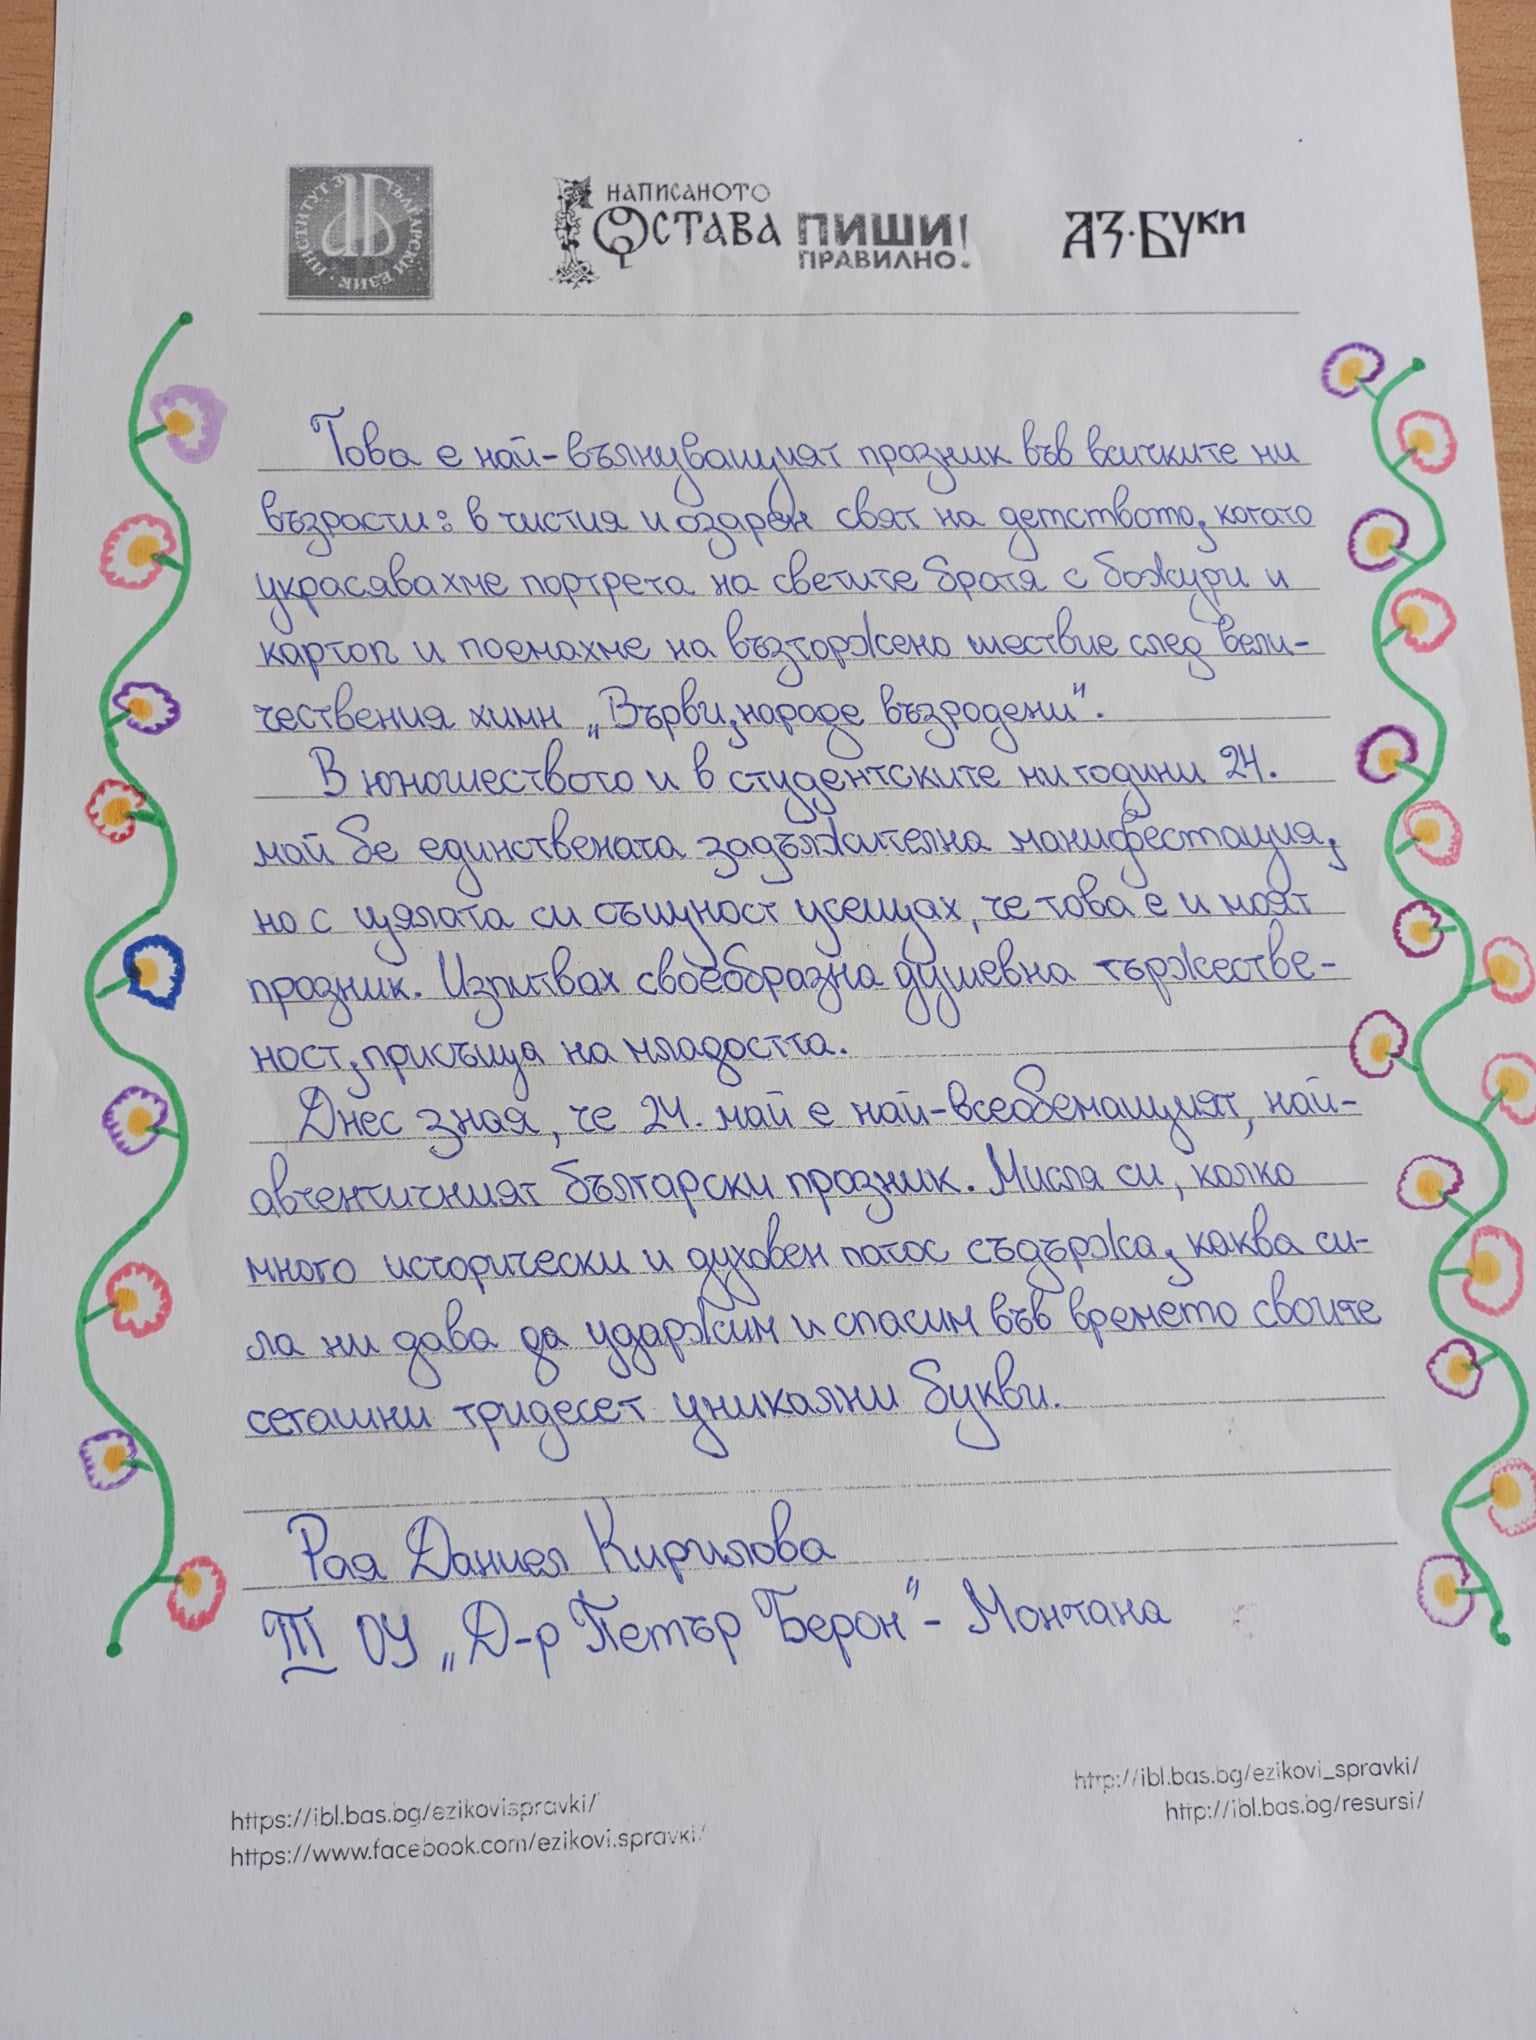 ИНСТИТУТ ЗА БЪЛГАРСКИ ЕЗИК
НАПИСАНОТО
ОСТАВА ПИШИ!
ПРАВИЛНО!
АЗ·БУКИ
Това е най-вълнуващият празник във всичките ни
възрасти: в чистия и озарен свят на детството, когато
украсявахме портрета на светите братя с божури и
картоп и поемахме на възторжено шествие след вели-
чествения химн „Върви, народе възродени".
В юношеството и в студентските ни години 24.
май бе единствената задължителна манифестация,
но с цялата си същност усещах, че това е и моят
празник. Изпитвах своеобразна душевна тържестве-
ност, присъща на младостта.
Днес зная, че 24. май е най-всеобемащият, най-
автентичният български празник. Мисля си, колко
много исторически и духовен патос съдържа, каква си-
ла ни дава да удържим и спасим във времето своите
сегашни тридесет уникални букви.
Рая Даниел Кирилова
III ОУ „Д-р Петър Берон" - Монтана
https://ibl.bas.bg/ezikovispravki/
https://www.facebook.com/ezikovi.spravki/
http://ibl.bas.bg/ezikovi_spravki/
http://ibl.bas.bg/resursi/